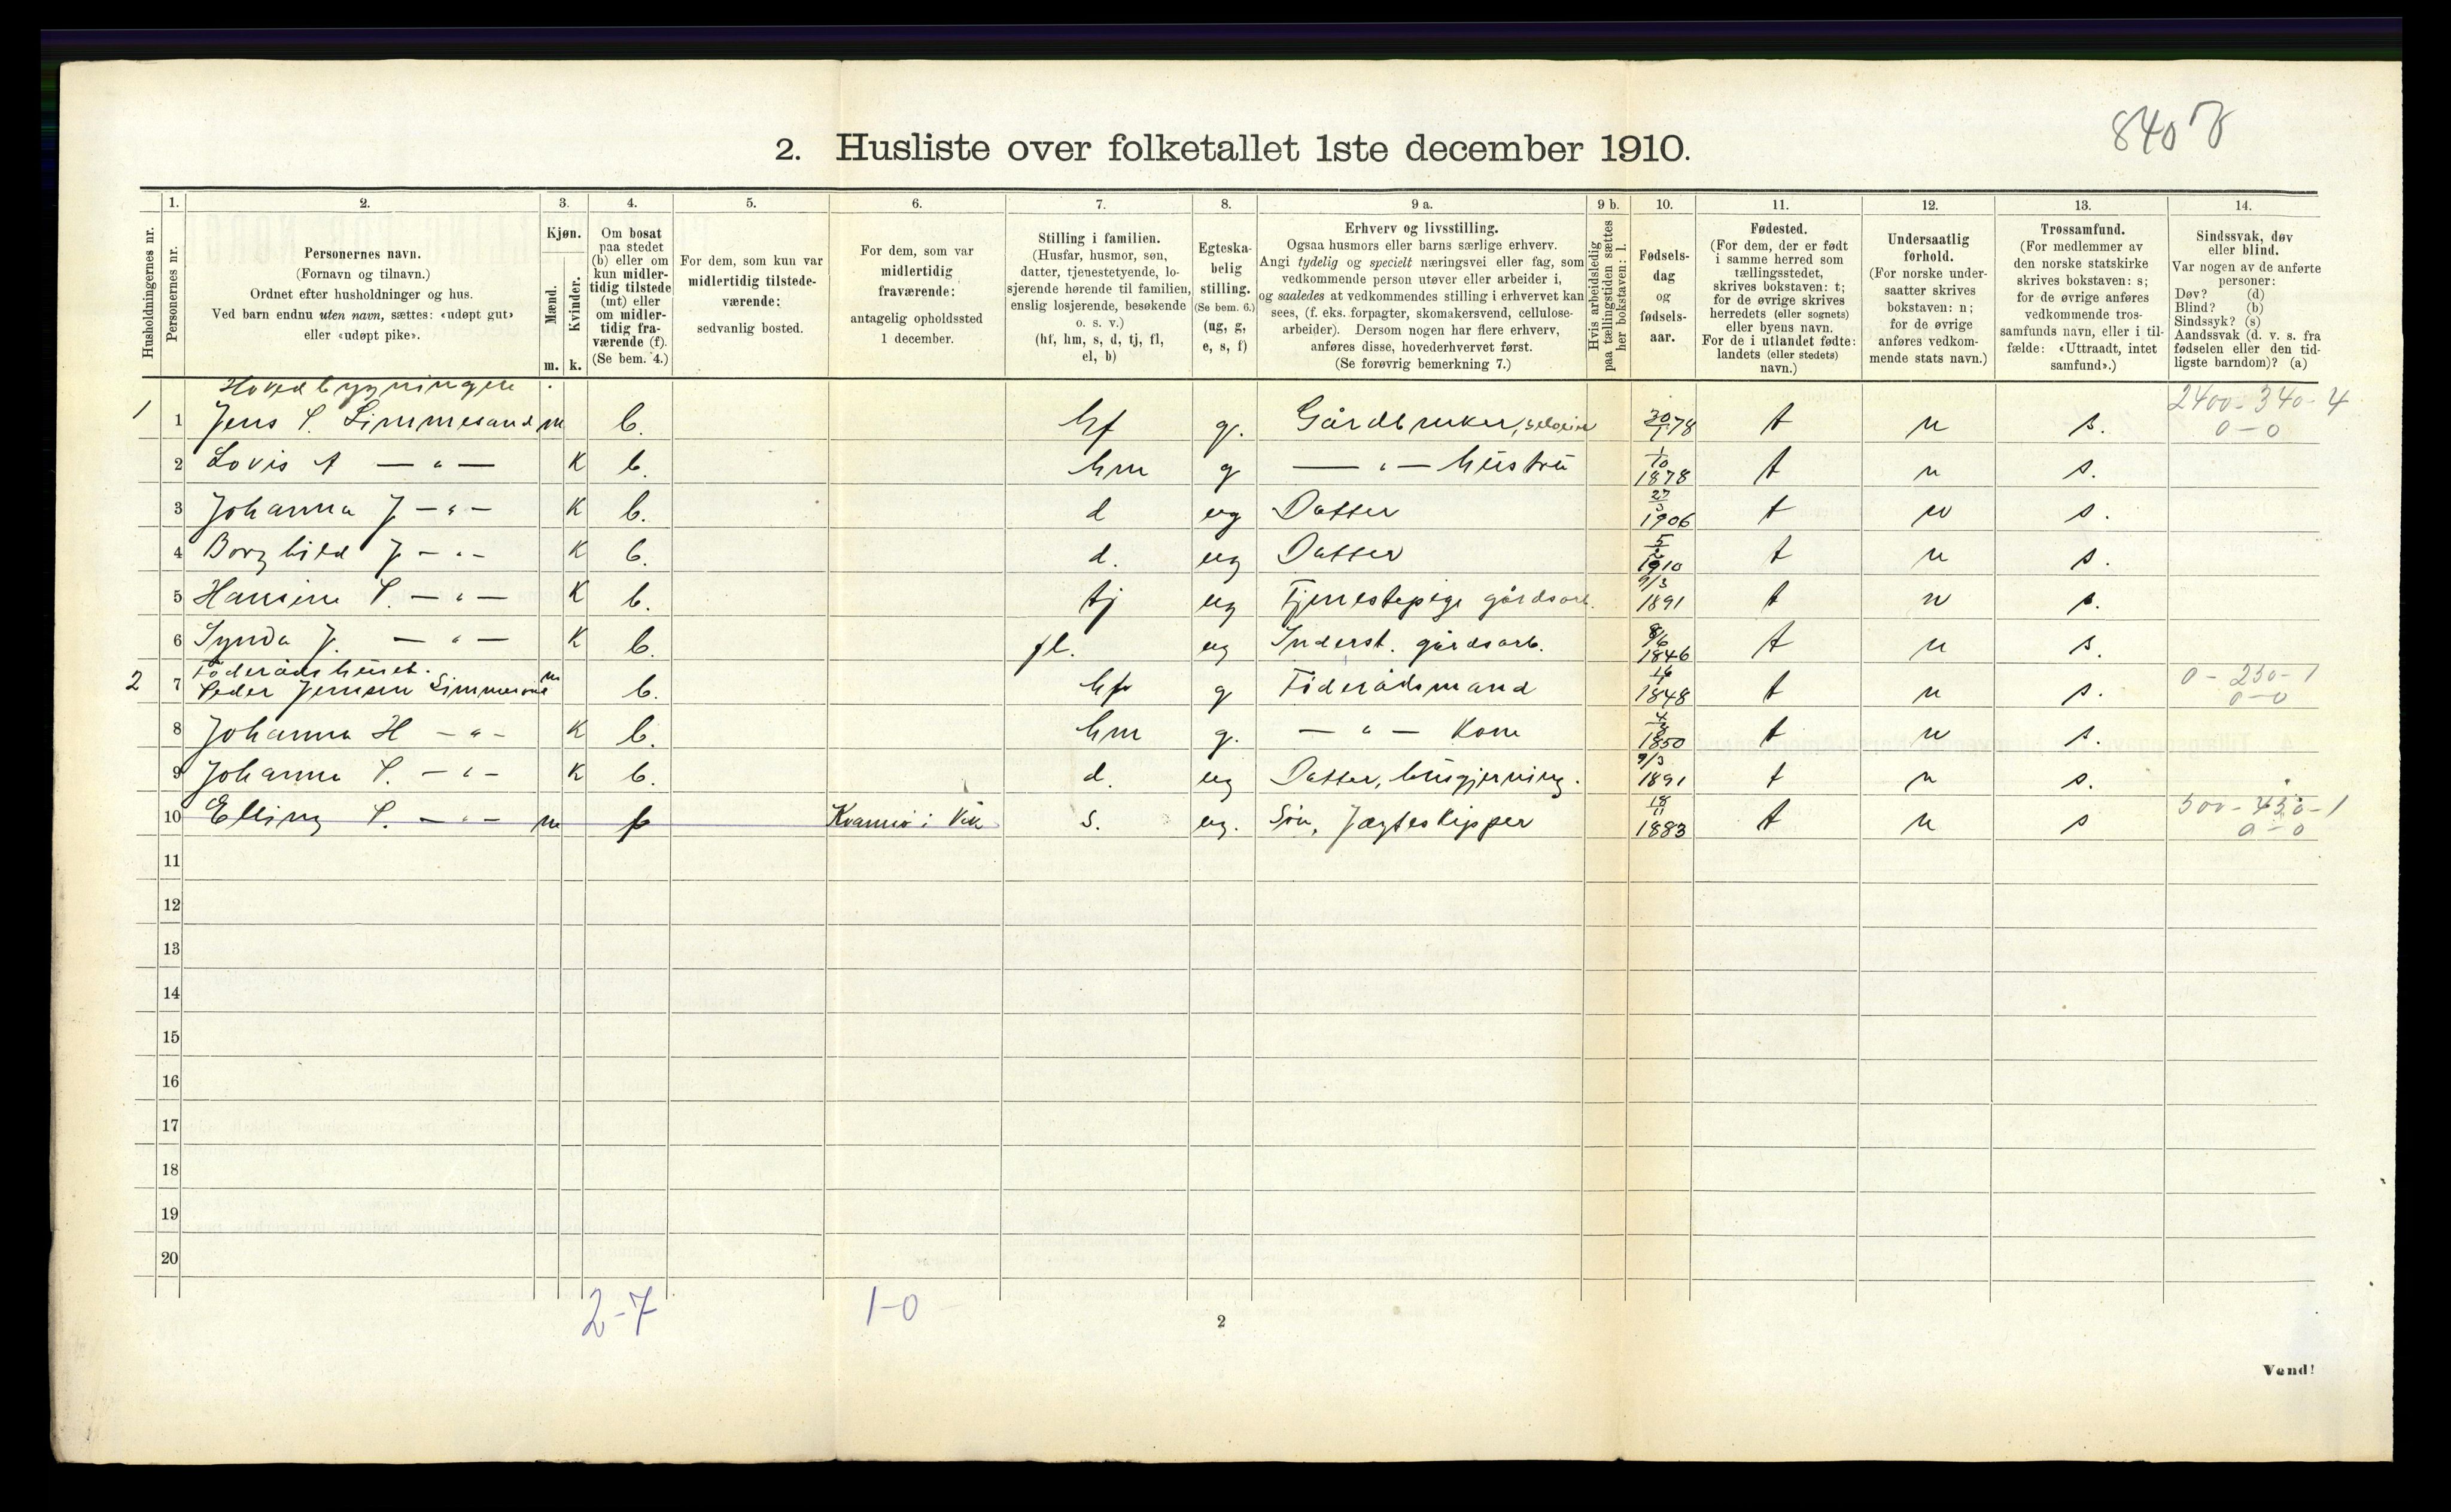 8408
2. Husliste over folketallet 1ste december 1910.
Husholdningernes nr.
1.
Personernes nr.
2.
Personernes navn.
(Fornavn og tilnavn.)
Ordnet efter husholdninger og hus.
Ved barn endnu uten navn, sættes: «udøpt gut»
eller «udøpt pike».
3.
Kjøn.
Mænd.
Kvinder.
m. k.
4.
Om bosat
paa stedet
(b) eller om
kun midler-
tidig tilstede
(mt) eller
om midler-
tidig fra-
værende (f).
(Se bem. 4.)
5.
For dem, som kun var
midlertidig tilstede-
værende:
sedvanlig bosted.
6.
For dem, som var
midlertidig
fraværende:
antagelig opholdssted
1 december.
7.
Stilling i familien.
(Husfar, husmor, søn,
datter, tjenestetyende, lo-
sjerende hørende til familien,
enslig losjerende, besøkende
o. s. v.)
(hf, hm, s, d, tj, fl,
el, b)
8.
Egteska-
belig
stilling.
(Se bem. 6.)
(ug, g,
e, s, f)
9 a.
Erhverv og livsstilling.
Ogsaa husmors eller barns særlige erhverv.
Angi tydelig og specielt næringsvei eller fag, som
vedkommende person utøver eller arbeider i,
og saaledes at vedkommendes stilling i erhvervet kan
sees, (f. eks. forpagter, skomakersvend, cellulose-
arbeider). Dersom nogen har flere erhverv,
anføres disse, hovederhvervet først.
(Se forøvrig bemerkning 7.)
9 b.
Hvis arbeidsledig
paa tællingstiden sættes
her bokstaven: l.
10.
Fødsels-
dag
og
fødsels-
aar.
11.
Fødested.
(For dem, der er født
i samme herred som
tællingsstedet,
skrives bokstaven: t;
for de øvrige skrives
herredets (eller sognets)
eller byens navn.
For de i utlandet fødte:
landets (eller stedets)
navn.)
12.
Undersaatlig
forhold.
(For norske under-
saatter skrives
bokstaven: n;
for de øvrige
anføres vedkom-
mende stats navn.)
13.
Trossamfund.
(For medlemmer av
den norske statskirke
skrives bokstaven: s;
for de øvrige anføres
vedkommende tros-
samfunds navn, eller i til-
fælde: «Uttraadt, intet
samfund».)
14.
Sindssvak, døv
eller blind.
Var nogen av de anførte
personer:
Døv? (d)
Blind? (b)
Sindssyk? (s)
Aandssvak (d. v. s. fra
fødselen eller den tid-
ligste barndom)? (a)
Hovedbygningen
2400-340-4
1 1 Jens P. Simmesand m b. hf g. Gårdbruker, selveier 30/1 78 t n s. 0-0
2 Lovis A — " — K b. hm g — " — hustru 1/10 1878 t n s.
3 Johanna J — " — K b. d ug Datter 27/3 1906 t n s.
4 Borghild J — " — K b. d. ug Datter 5/2 1910 t n s.
5 Hansine P. — " — K b. tj ug Tjenestepige gårdsarb. 9/3 1891 t n s.
6 Synda J. — " — K b. fl. ug Inderst. gårdsarb. 8/6 1846 t n s.
Föderådshuset.
2 7 Peder Jensen Simmesand m b. hf g Föderådsmand 1848 t n s. 0-230-1
0-0
8 Johanna H — " — K b. hm g. — " — Kone 1850 t n s.
9 Johanna P. — " — K b. d. ug Datter, husgjerning. 9/3 1891 t n s.
10 Elling P. — " — m f Kvamsö i Vik s. ug. Sön, Jægteskipper 18/11 1883 t n s 500-450-1
0-0
11
12
13
14
15
16
17
18
19
20
2-7 1-0
2
Vend!